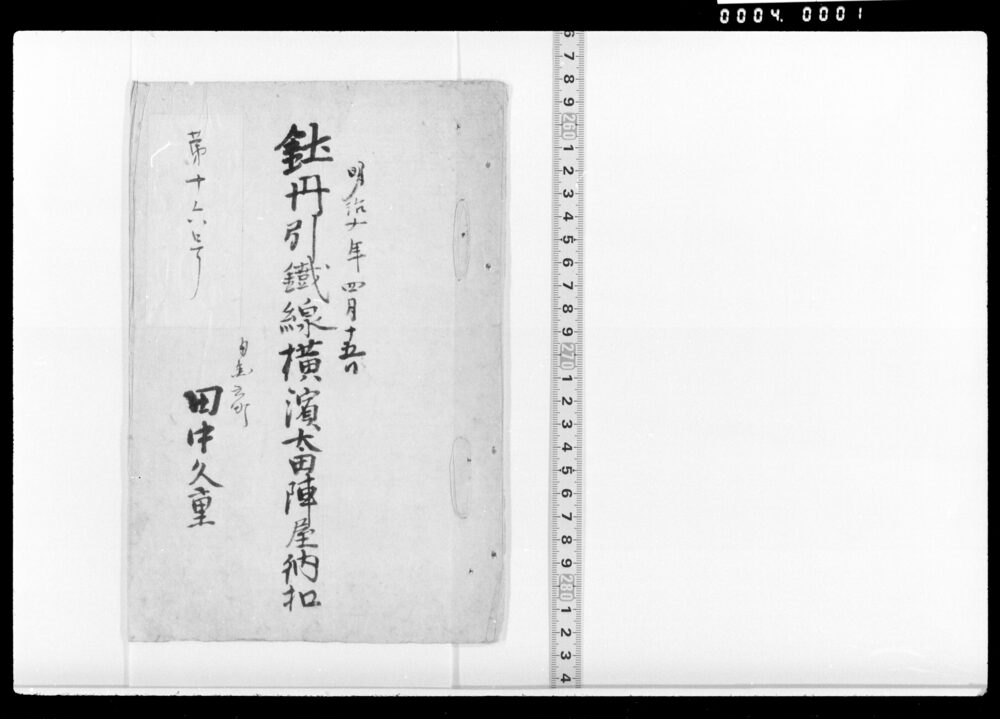 0004.0001
明治十年四月十五日
鈦丹引鐵線横濱太田陣屋納扣
第十六号
田中久重
6 7 8 9 260 1 2 3 4 5 6 7 8 9 270 1 2 3 4 5 6 7 8 9 280 1 2 3 4